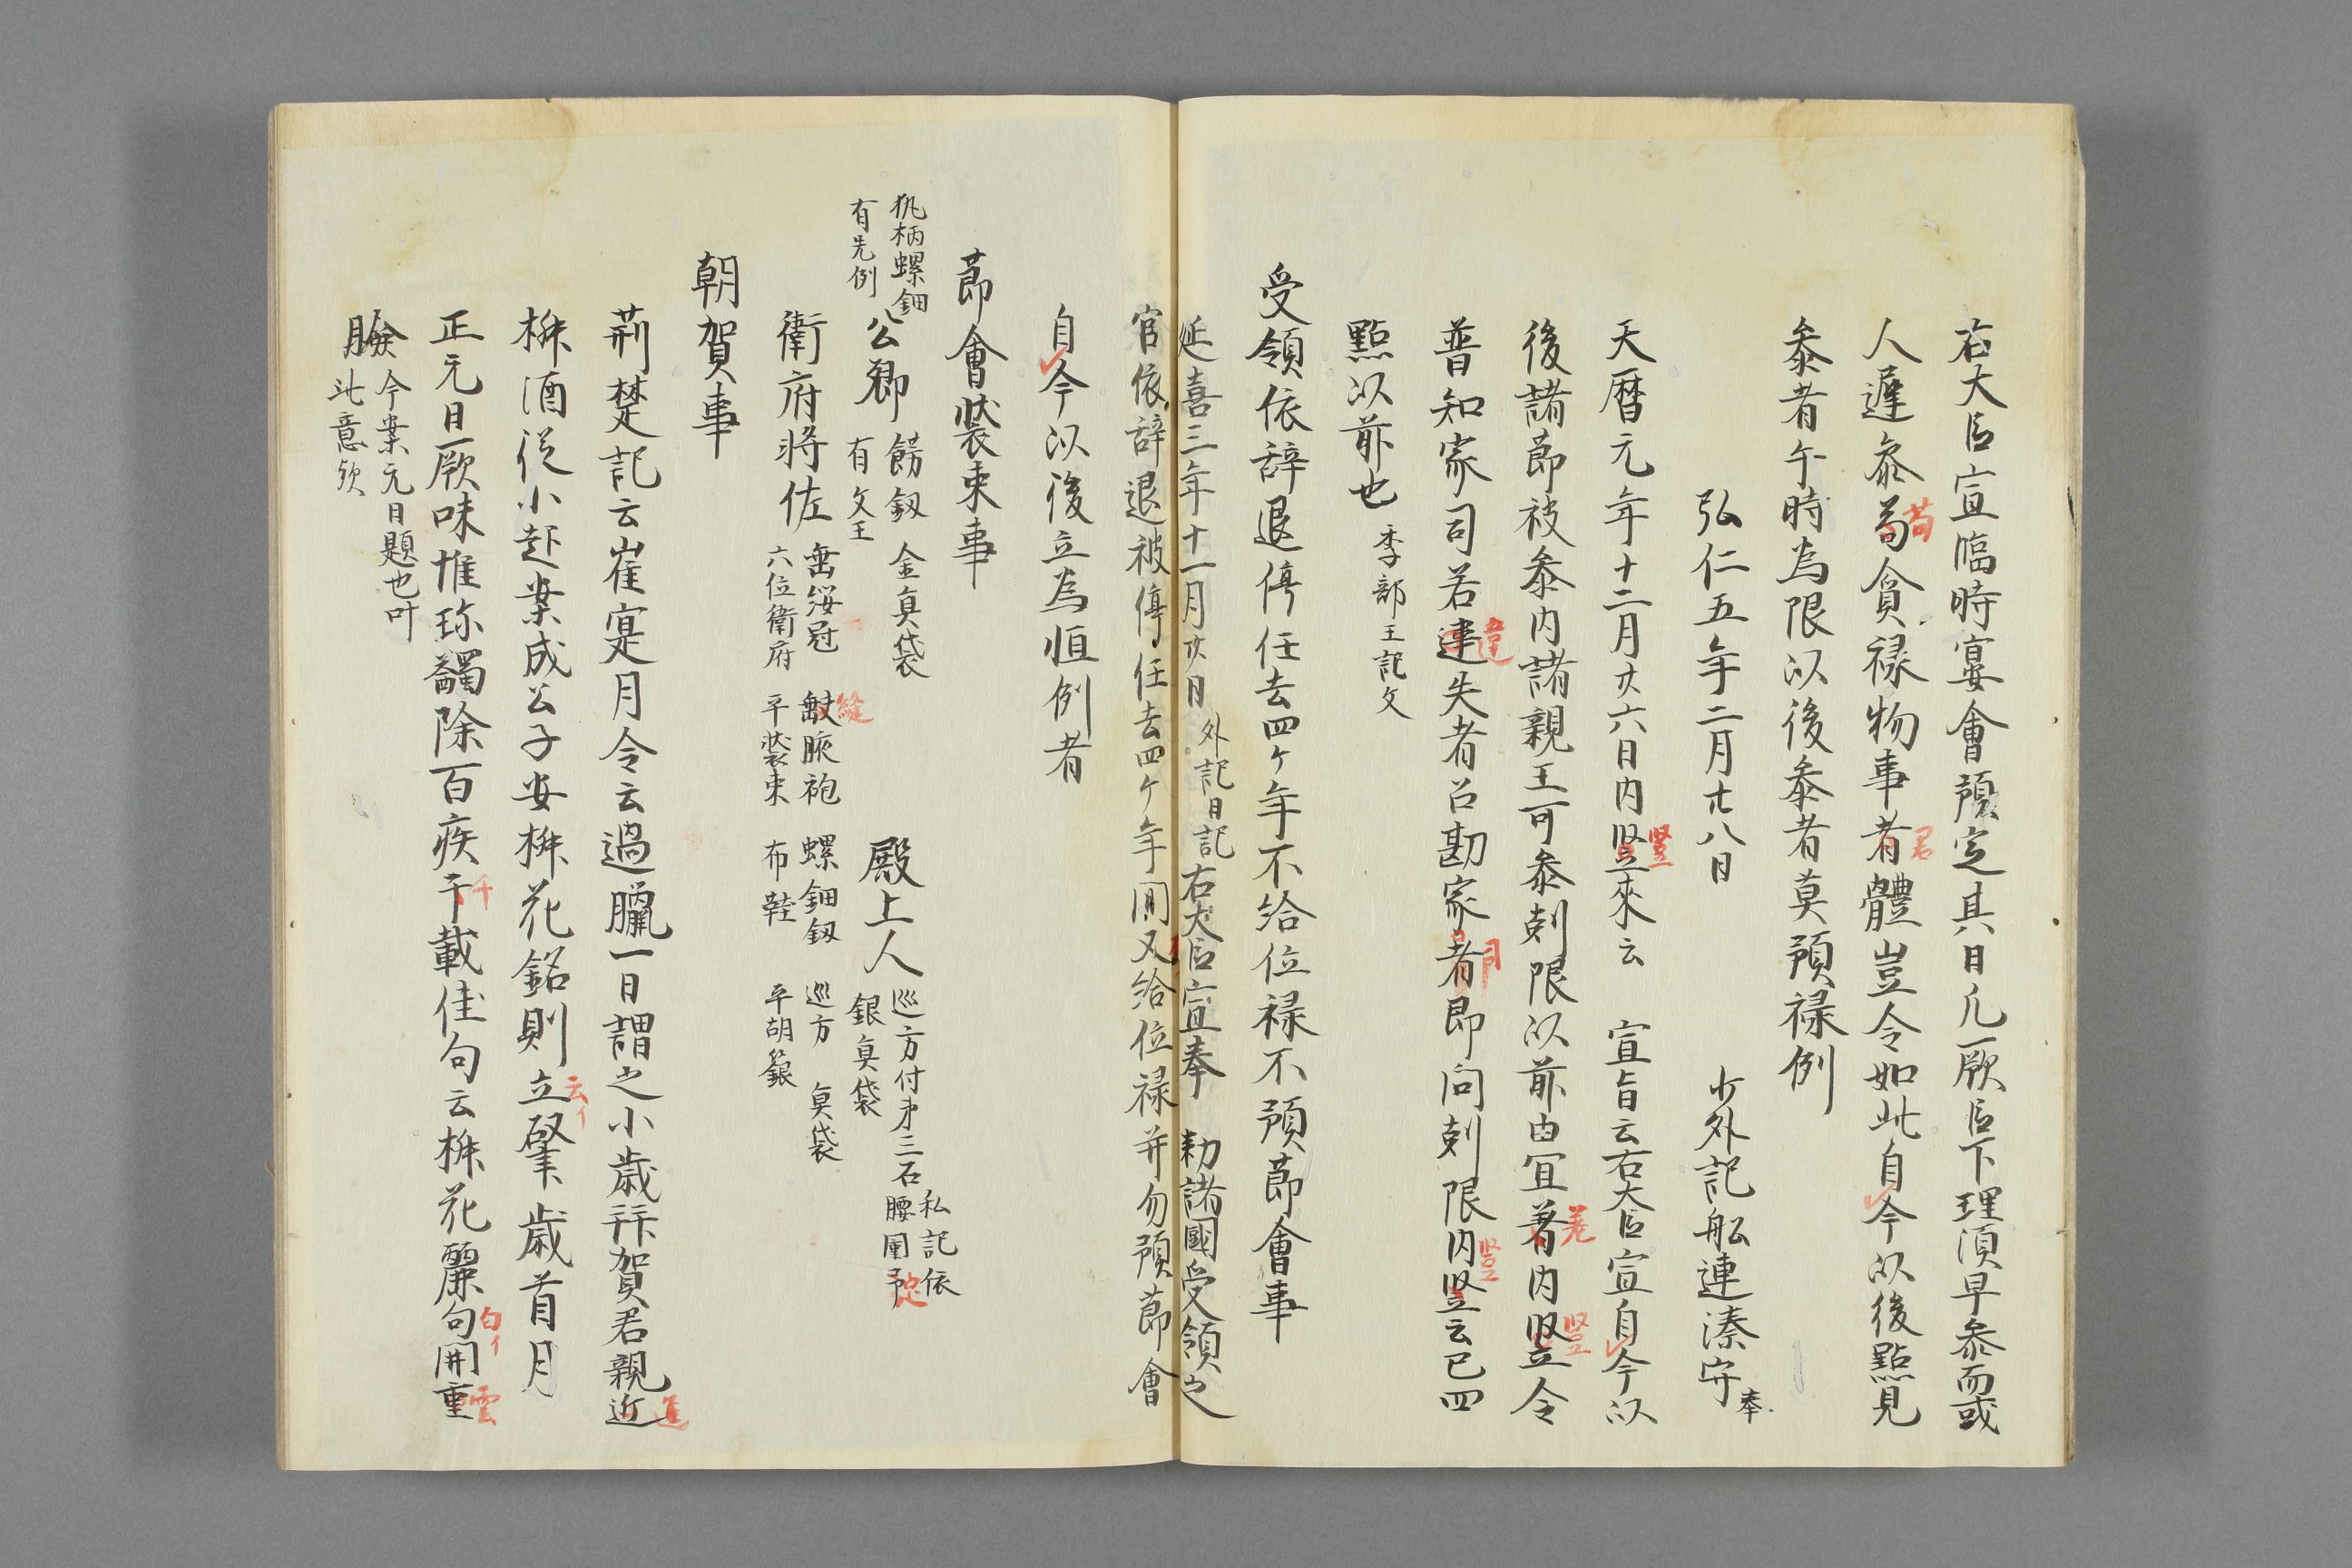 右大臣宣臨時宴會預定其日凡厥臣下理須早参而或
人遅参苟貪禄物事者體豈令如此自今以後點見
苟
君
参者午時為限以後参者莫預禄例
弘仁五年二月廿八日 少外記舩連湊守奉
天暦元年十二月廿六日内竪來云 宣旨云右大臣宣自今以
竪
後諸莭被参内諸親王可参剋限以前由宜着内竪令
着
竪
普知家司若違失者召勘家者即问剋限内竪云已四
違
司
竪
點以前也 季部王記文
受領依辞退停任去四ケ年不給位禄不預莭會事
延喜三年十一月廿日 外記日記 右大臣宣奉 勅諸國受領之
官依辞退被停任去四ケ年间又給位禄并勿預莭會
自今以後立為恒例者
莭會装束事
犰柄螺鈿
有先例
公卿 餝釼 金魚袋
有文王
殿上人 巡方付才三石
銀魚袋
私記依
腰圍
衛府將佐 垂緌冠 縫腋袍 螺鈿釼 巡方 魚袋
六位衛府 平装束 布鞋 平胡籙
縫
朝賀事
荊楚記云崔寔月令云過臘一日謂之小歳拜賀君親近
進
椒酒從小起案成公子安椒花銘則立肇歳首月
云イ
正元日厥味惟珎蠲除百疾千載佳句云椒花麗句開重
千
白イ
雲
臉 今案元日題也叶
此意欤